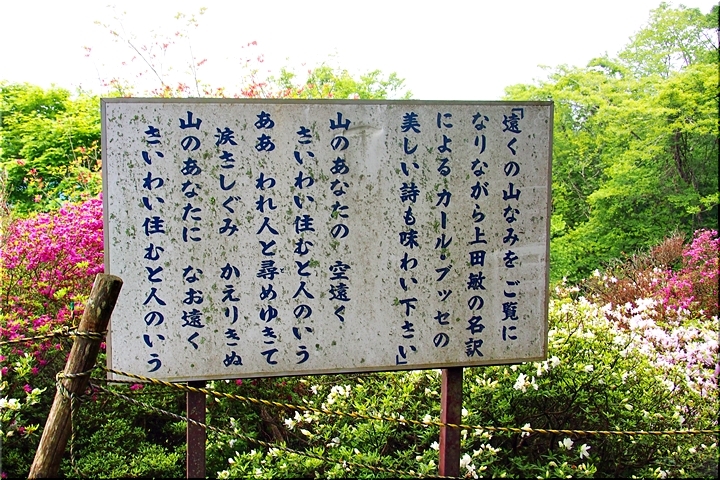 「遠くの山なみを ご覧に
なりながら上田敏の名訳
による カール・ブッセの
美しい詩も味わい下さい」
山のあなたの 空遠く
さいわい住むと人のいう
ああ われ人と尋めゆきて
涙さしぐみ かえりきぬ
山のあなたに なお遠く
さいわい住むと人のいう